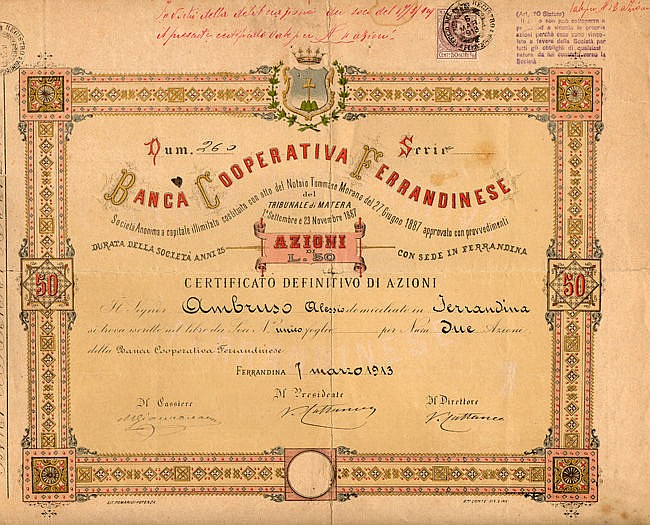 (Art. 10 Statuto)
Num. 260 Serie
BANCA COOPERATIVA FERRANDINESE
Società Anonima a capitale illimitato costituita con atto del Notaio Tommaso Morano del 27 Giugno 1887 approvato con provvedimenti
del
TRIBUNALE di MATERA
1º Settembre e 23 Novembre 1887
DURATA DELLA SOCIETÀ ANNI 25
CON SEDE IN FERRANDINA
AZIONI
DI
L. 50
50
50
CERTIFICATO DEFINITIVO DI AZIONI
Il Signor Ambruso Alessio domiciliato in Ferrandina
si trova iscritto nel libro dei Soci Nº unico foglio per Num. Due Azioni
della Banca Cooperativa Ferrandinese
FERRANDINA 7 marzo 1913
Il Cassiere
Il Presidente
Il Direttore
V. Cattaneo
V. Cattaneo
LIT. POMARICI POTENZA